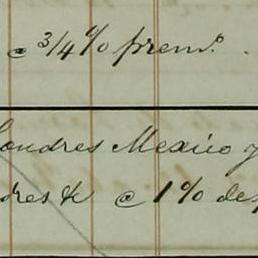 @ 3/4 % prem.º
Londres Mexico y
dres & @ 1 % des